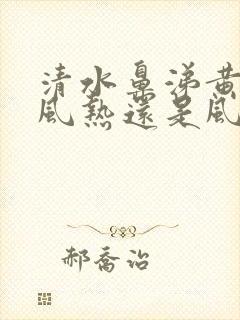 清水鼻涕黃
風熱還是風
郝喬治